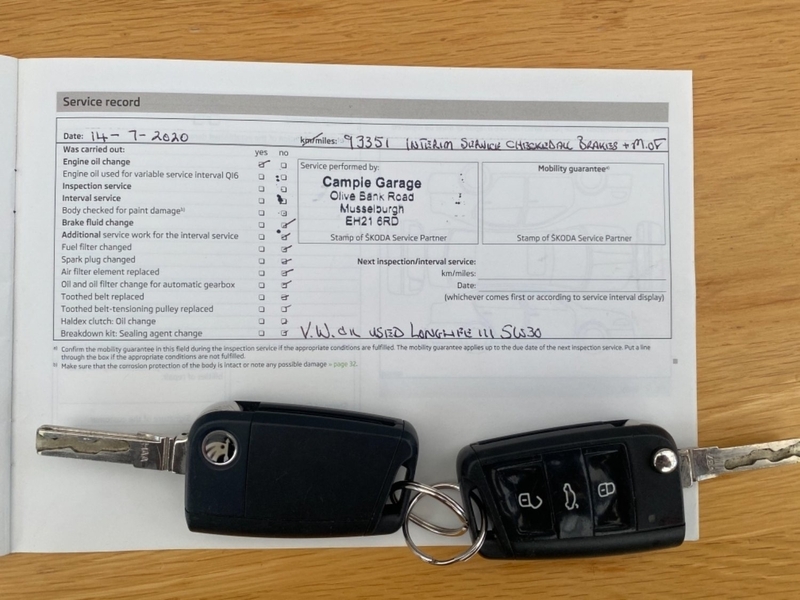 Service record
Date: 14-7-2020 km/miles: 93351 INTERIM SERVICE CHECKED ALL BRAKES + M.OT
Was carried out: yes no
Engine oil change
Engine oil used for variable service interval QI6
Inspection service
Interval service
Body checked for paint damage b)
Brake fluid change
Additional service work for the interval service
Fuel filter changed
Spark plug changed
Air filter element replaced
Oil and oil filter change for automatic gearbox
Toothed belt replaced
Toothed belt-tensioning pulley replaced
Haldex clutch: Oil change
Breakdown kit: Sealing agent change
Service performed by:
Campie Garage
Olive Bank Road
Musselburgh
EH21 6RD
Stamp of ŠKODA Service Partner
Mobility guarantee a)
Stamp of ŠKODA Service Partner
Next inspection/interval service:
km/miles:
Date:
(whichever comes first or according to service interval display)
V.W. OIL USED LONGLIFE III 5W30
a) Confirm the mobility guarantee in this field during the inspection service if the appropriate conditions are fulfilled. The mobility guarantee applies up to the due date of the next inspection service. Put a line
through the box if the appropriate conditions are not fulfilled.
b) Make sure that the corrosion protection of the body is intact or note any possible damage » page 32.